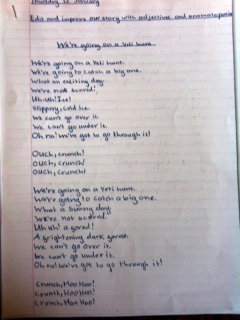 Thursday 12 January
Edit and improve our story with adjectives and onomatopoeia
We're going on a Yeti hunt
We're going on a Yeti hunt.
We're going to catch a big one.
What an exciting day.
We're not scared!
Uh-uh! Ice!
Slippery, cold ice.
We can't go over it.
We can't go under it.
Oh no! we've got to go through it!
Ouch, crunch!
Ouch, crunch!
Ouch, crunch!
We're going on a Yeti hunt.
We're going to catch a big one.
What a sunny day.
We're not scared.
Uh uh! a
A frightening dark
We can't go over it.
We can't go under it.
Oh no! we've got to go through it!
Crunch, Hoo Hoo!
Crunch, Hoo Hoo!
Crunch, Hoo Hoo!